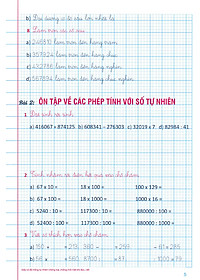 b) Đọc đường có tô sau lớn nhất là
3 Làm tròn các số sau.
a) 246810 làm tròn đến hàng trăm
b) 353027 làm tròn đến hàng nghìn
c) 432786 làm tròn đến hàng nghìn
d) 587894 làm tròn đến hàng chục nghìn
Bài 2: ÔN TẬP VỀ CÁC PHÉP TÍNH VỚI SỐ TỰ NHIÊN
1 Đặt tính rồi tính
a) 416067 + 874125 b) 608341 - 276303 c) 32019 x 7 d) 82984 : 41
2 Tính nhẩm rồi điền kết quả vào chỗ chấm
a) 67 x 10 = 18 x 100 = 100 x 129 =
b) 67 x 10 = 18 x 100 = 1000 x 16 =
c) 5240 : 10 = 117300 : 10 = 880000 : 100 =
d) 52400 : 10 = 117300 : 100 = 880000 : 1000 =
3 Viết số thích hợp vào chỗ chấm